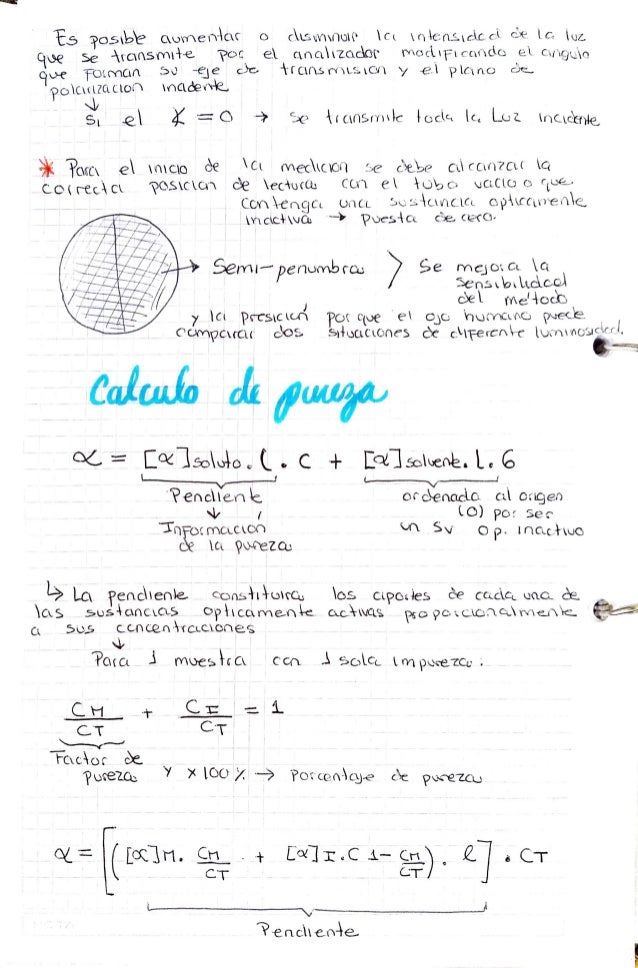 Es posible aumentar o disminuir la intensidad de la luz
que se transmite por el analizador modificando el angulo
que forman su eje de transmision y el plano de
polarizacion inadente
↓
Si el ∡ = 0 → se transmite toda la Luz incidente
* Para el inicio de la medicion se debe alcanzar la
correcta posicion de lectura con el tubo vacio o que
contenga una sustancia opticamente
inactiva → puesta de cero.
→ Semi-penumbra > Se mejora la
sensibilidad
del metodo
y la presicion por que el ojo humano puede
comparar dos situaciones de diferente luminosidad.
Calculo de pureza
α = [α]soluto. l. C + [α]solvente. l. 6
Pendiente ordenada al origen
↓ (0) por ser
Información un Sv op. inactivo
de la pureza
↳ La pendiente constituira los aportes de cada una de
las sustancias opticamente activas proporcionalmente
a sus concentraciones
↓
Para 1 muestra con 1 sola impureza:
CM/CT + CI/CT = 1
Factor de
Pureza y x100% → Porcentaje de pureza
α = [([α]M. CM/CT + [α]I.C 1- CM/CT). l] . CT
Pendiente